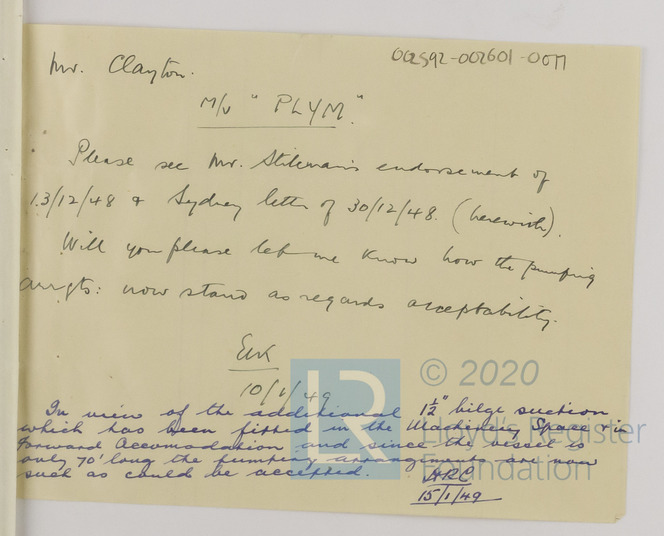 002592-002601-0077
Mr. Clayton.
M/V "PLYM".
Please see Mr. Stileman's endorsement of
13/12/48 & Sydney letter of 30/12/48. (herewith).
Will you please let me know how the pumping
arrgts: now stand as regards acceptability.
10/1/49
In view of the additional 1½" bilge suction
which has been fitted in the Machinery Space & in
Forward Accomodation and since the vessel is
only 70' long the pumping arrangements are now
such as could be accepted.
HRC
15/1/49
© 2020
LR
Lloyd's Register
Foundation